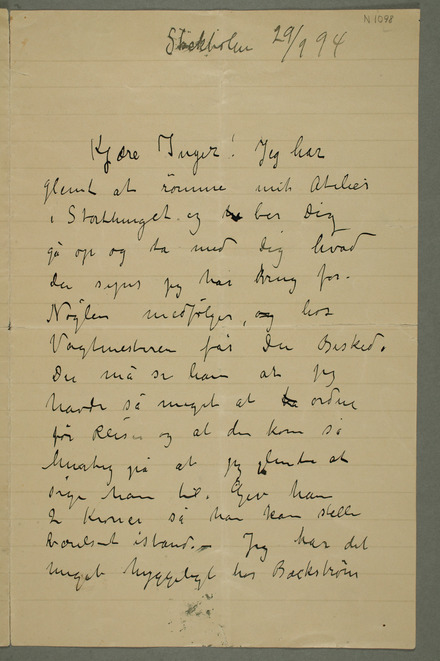 N 1098
Stockholm 29/9 94
Kjære Inger! Jeg har
glemt at römme mit Atelier
i Storthinget og ber Dig
gå op og ta med Dig hvad
du syns jeg har brug for.
Nöglen medfölger, hos
Vagtmesteren får Du Besked.
Du må si ham at jeg
havde så meget at ordne
för Reisen og at den kom så
hurtig på at jeg glemte at
sige ham til. Gev ham
2 Kroner så han kan stelle
Værelset istand. – Jeg har det
meget hyggeligt hos Backström